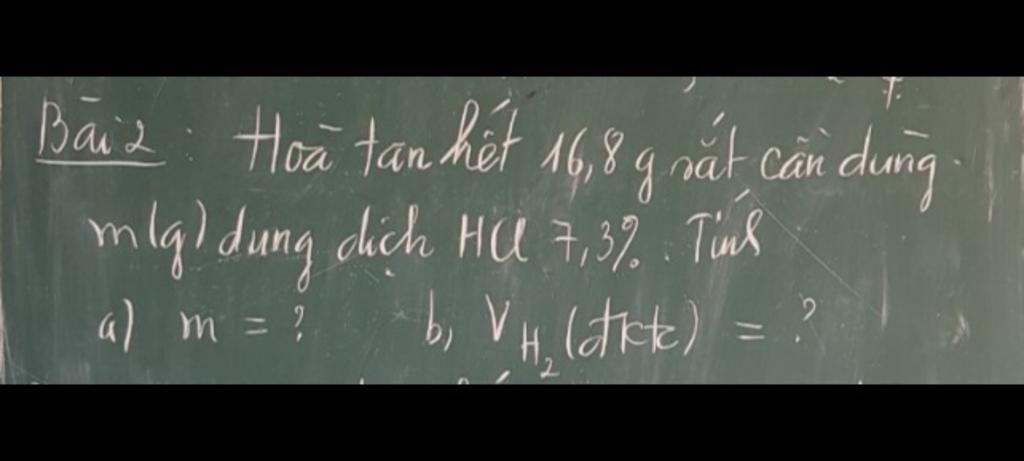 Bài 2 : Hoà tan hết 16,8 g sắt cần dùng
m(g) dung dịch HCl 7,3%. Tính
a) m = ? b, V H₂ (đktc) = ?